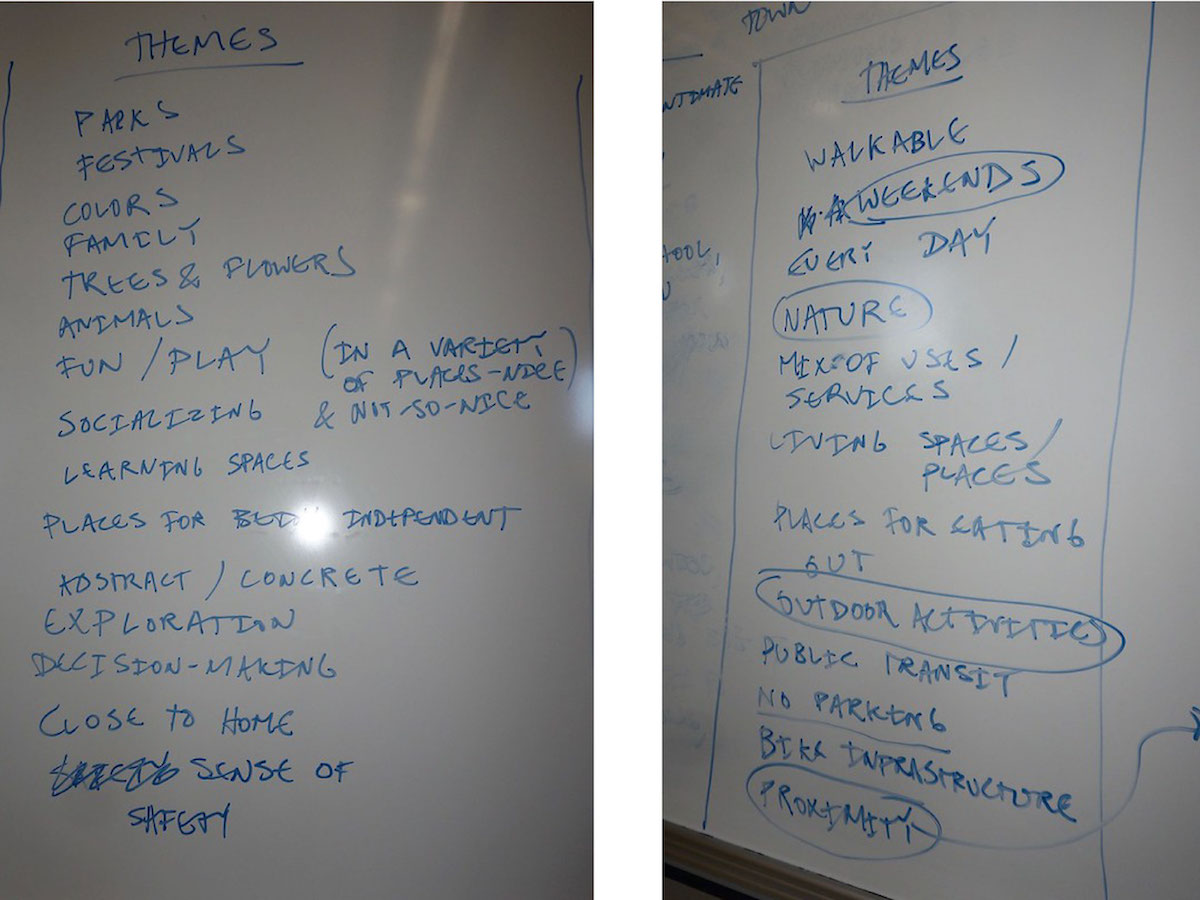 THEMES
PARKS
FESTIVALS
COLORS
FAMILY
TREES & FLOWERS
ANIMALS
FUN / PLAY (IN A VARIETY
OF PLACES-NICE)
SOCIALIZING & NOT-SO-NICE
LEARNING SPACES
PLACES FOR INDEPENDENT
ABSTRACT / CONCRETE
EXPLORATION
DECISION-MAKING
CLOSE TO HOME
SENSE OF
SAFETY
TOWN
NTIMATE
OOL,
THEMES
WALKABLE
WEEKENDS
EVERY DAY
NATURE
MIX OF USES /
SERVICES
LIVING SPACES/
PLACES
PLACES FOR EATING
OUT
OUTDOOR ACTIVITIES
PUBLIC TRANSIT
NO PARKING
BIKE INFRASTRUCTURE
PROXIMITY